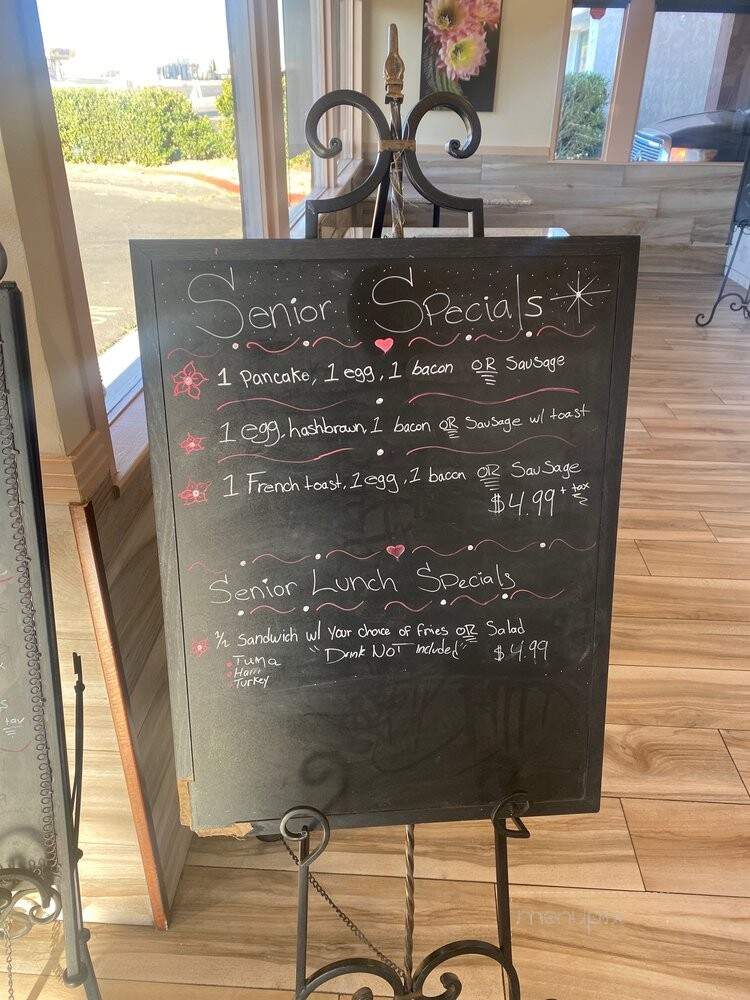 Senior Specials
1 Pancake, 1 egg, 1 bacon OR Sausage
1 egg, hashbrown, 1 bacon OR Sausage w/ toast
1 French toast, 1 egg, 1 bacon OR Sausage
$4.99 + tax
Senior Lunch Specials
1/2 Sandwich w/ Your choice of fries OR Salad
"Drink NOT Included" $4.99
Tuna
Ham
Turkey
tax
menupix